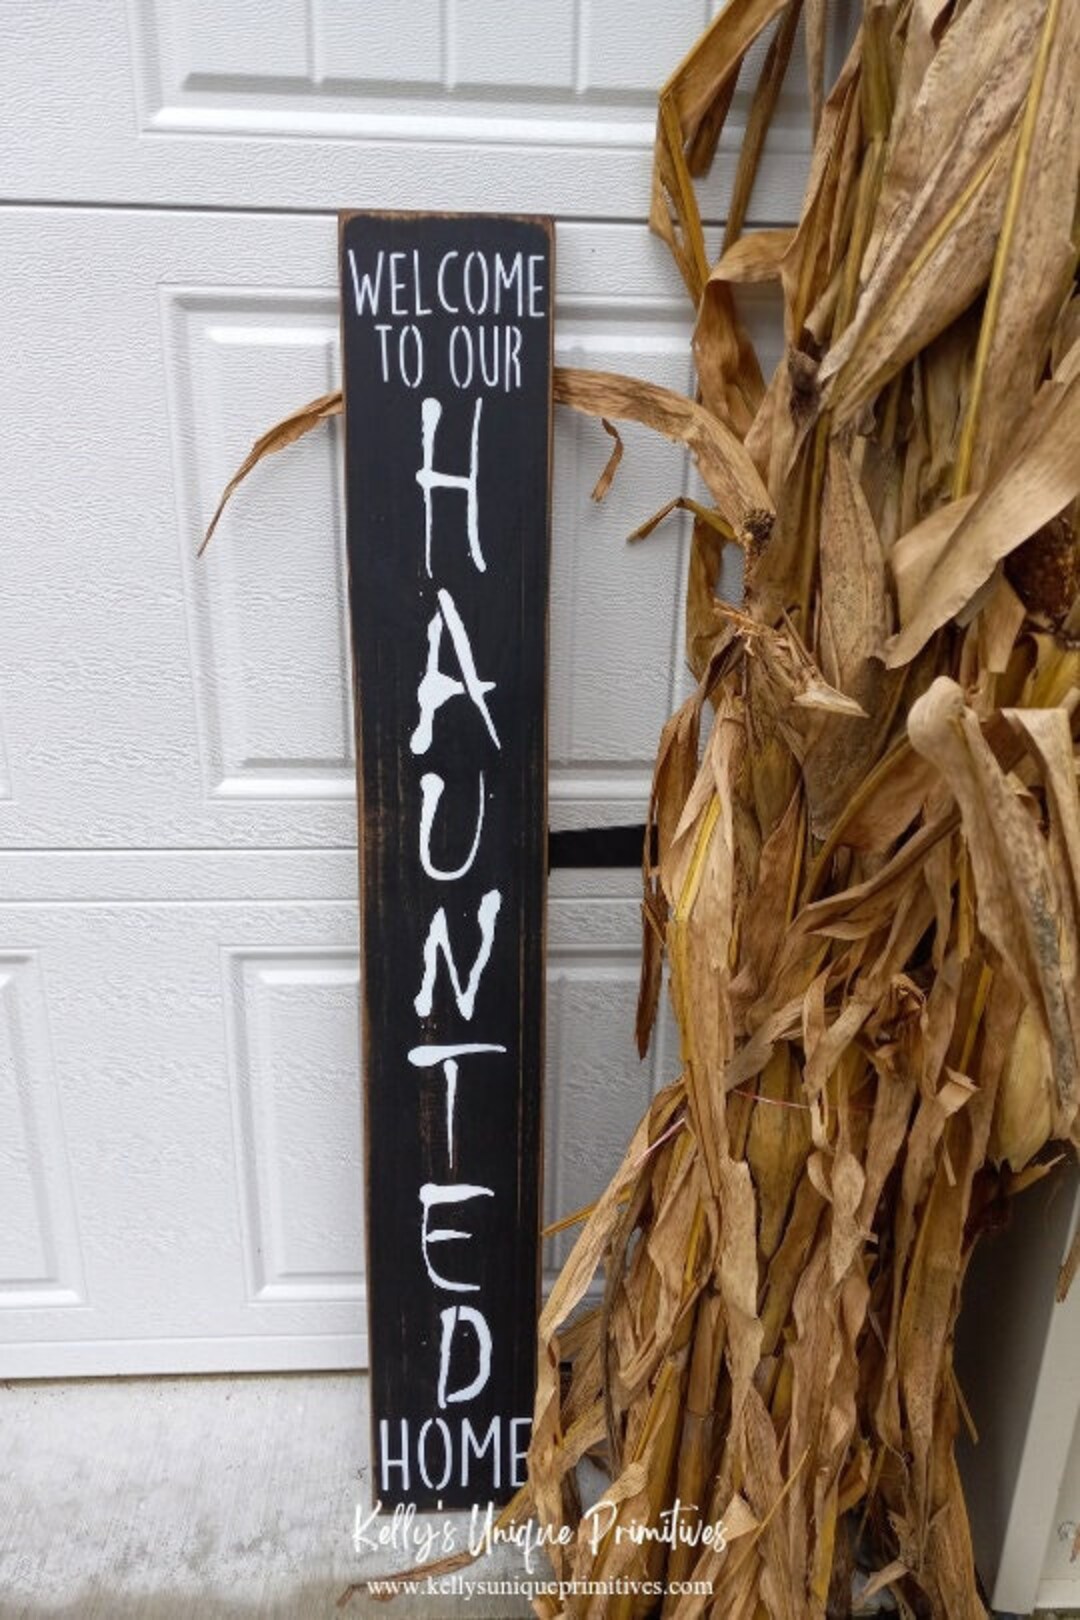 WELCOME
TO OUR
HAUNTED
HOME
Kelly's Unique Primitives
www.kellysuniqueprimitives.com